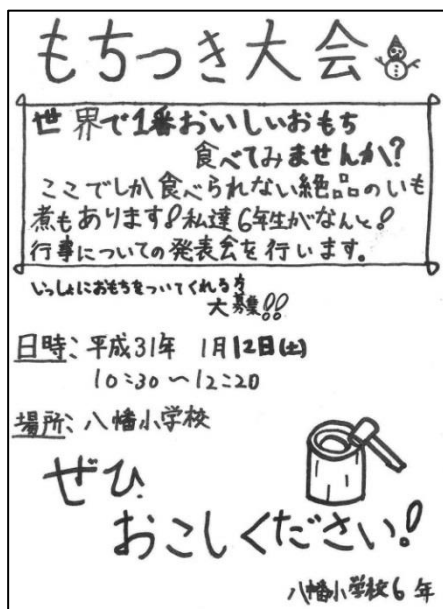 もちつき大会
世界で1番おいしいおもち
食べてみませんか?
ここでしか食べられない絶品のいも
煮もあります!私達6年生がなんと!
行事についての発表会を行います。
いっしょにおもちをついてくれる方
大募集!!
日時:平成31年 1月12日(土)
10:30〜12:20
場所:八幡小学校
ぜひ
おこしください!
八幡小学校6年